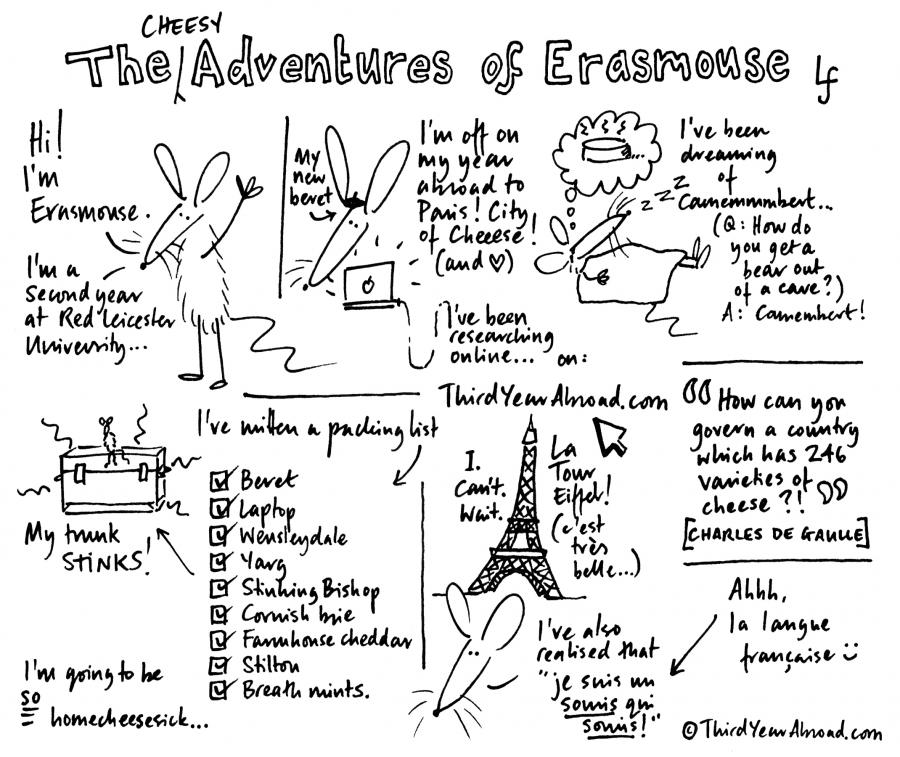 CHEESY
The Adventures of Erasmouse lf
Hi!
I'm
Erasmouse.
I'm a
second year
at Red Leicester
University...
My
new
beret
I'm off on
my year
abroad to
Paris! City
of Cheeese!
(and ♡)
I've been
researching
online... on:
ThirdYearAbroad.com
zzz
I've been
dreaming
of
Camemmmbert...
(Q: How do
you get a
bear out
of a cave?)
A: Camembert!
My trunk
STINKS!
I've written a packing list
Beret
Laptop
Wensleydale
Yarg
Stinking Bishop
Cornish brie
Farmhouse cheddar
Stilton
Breath mints.
I'm going to be
so
homecheesesick...
I.
Can't.
Wait.
La
Tour
Eiffel!
(c'est
très
belle...)
I've also
realised that
"je suis un
souris qui
souris!"
"How can you
govern a country
which has 246
varieties of
cheese?!"
[CHARLES DE GAULLE]
Ahhh,
la langue
française
©ThirdYearAbroad.com